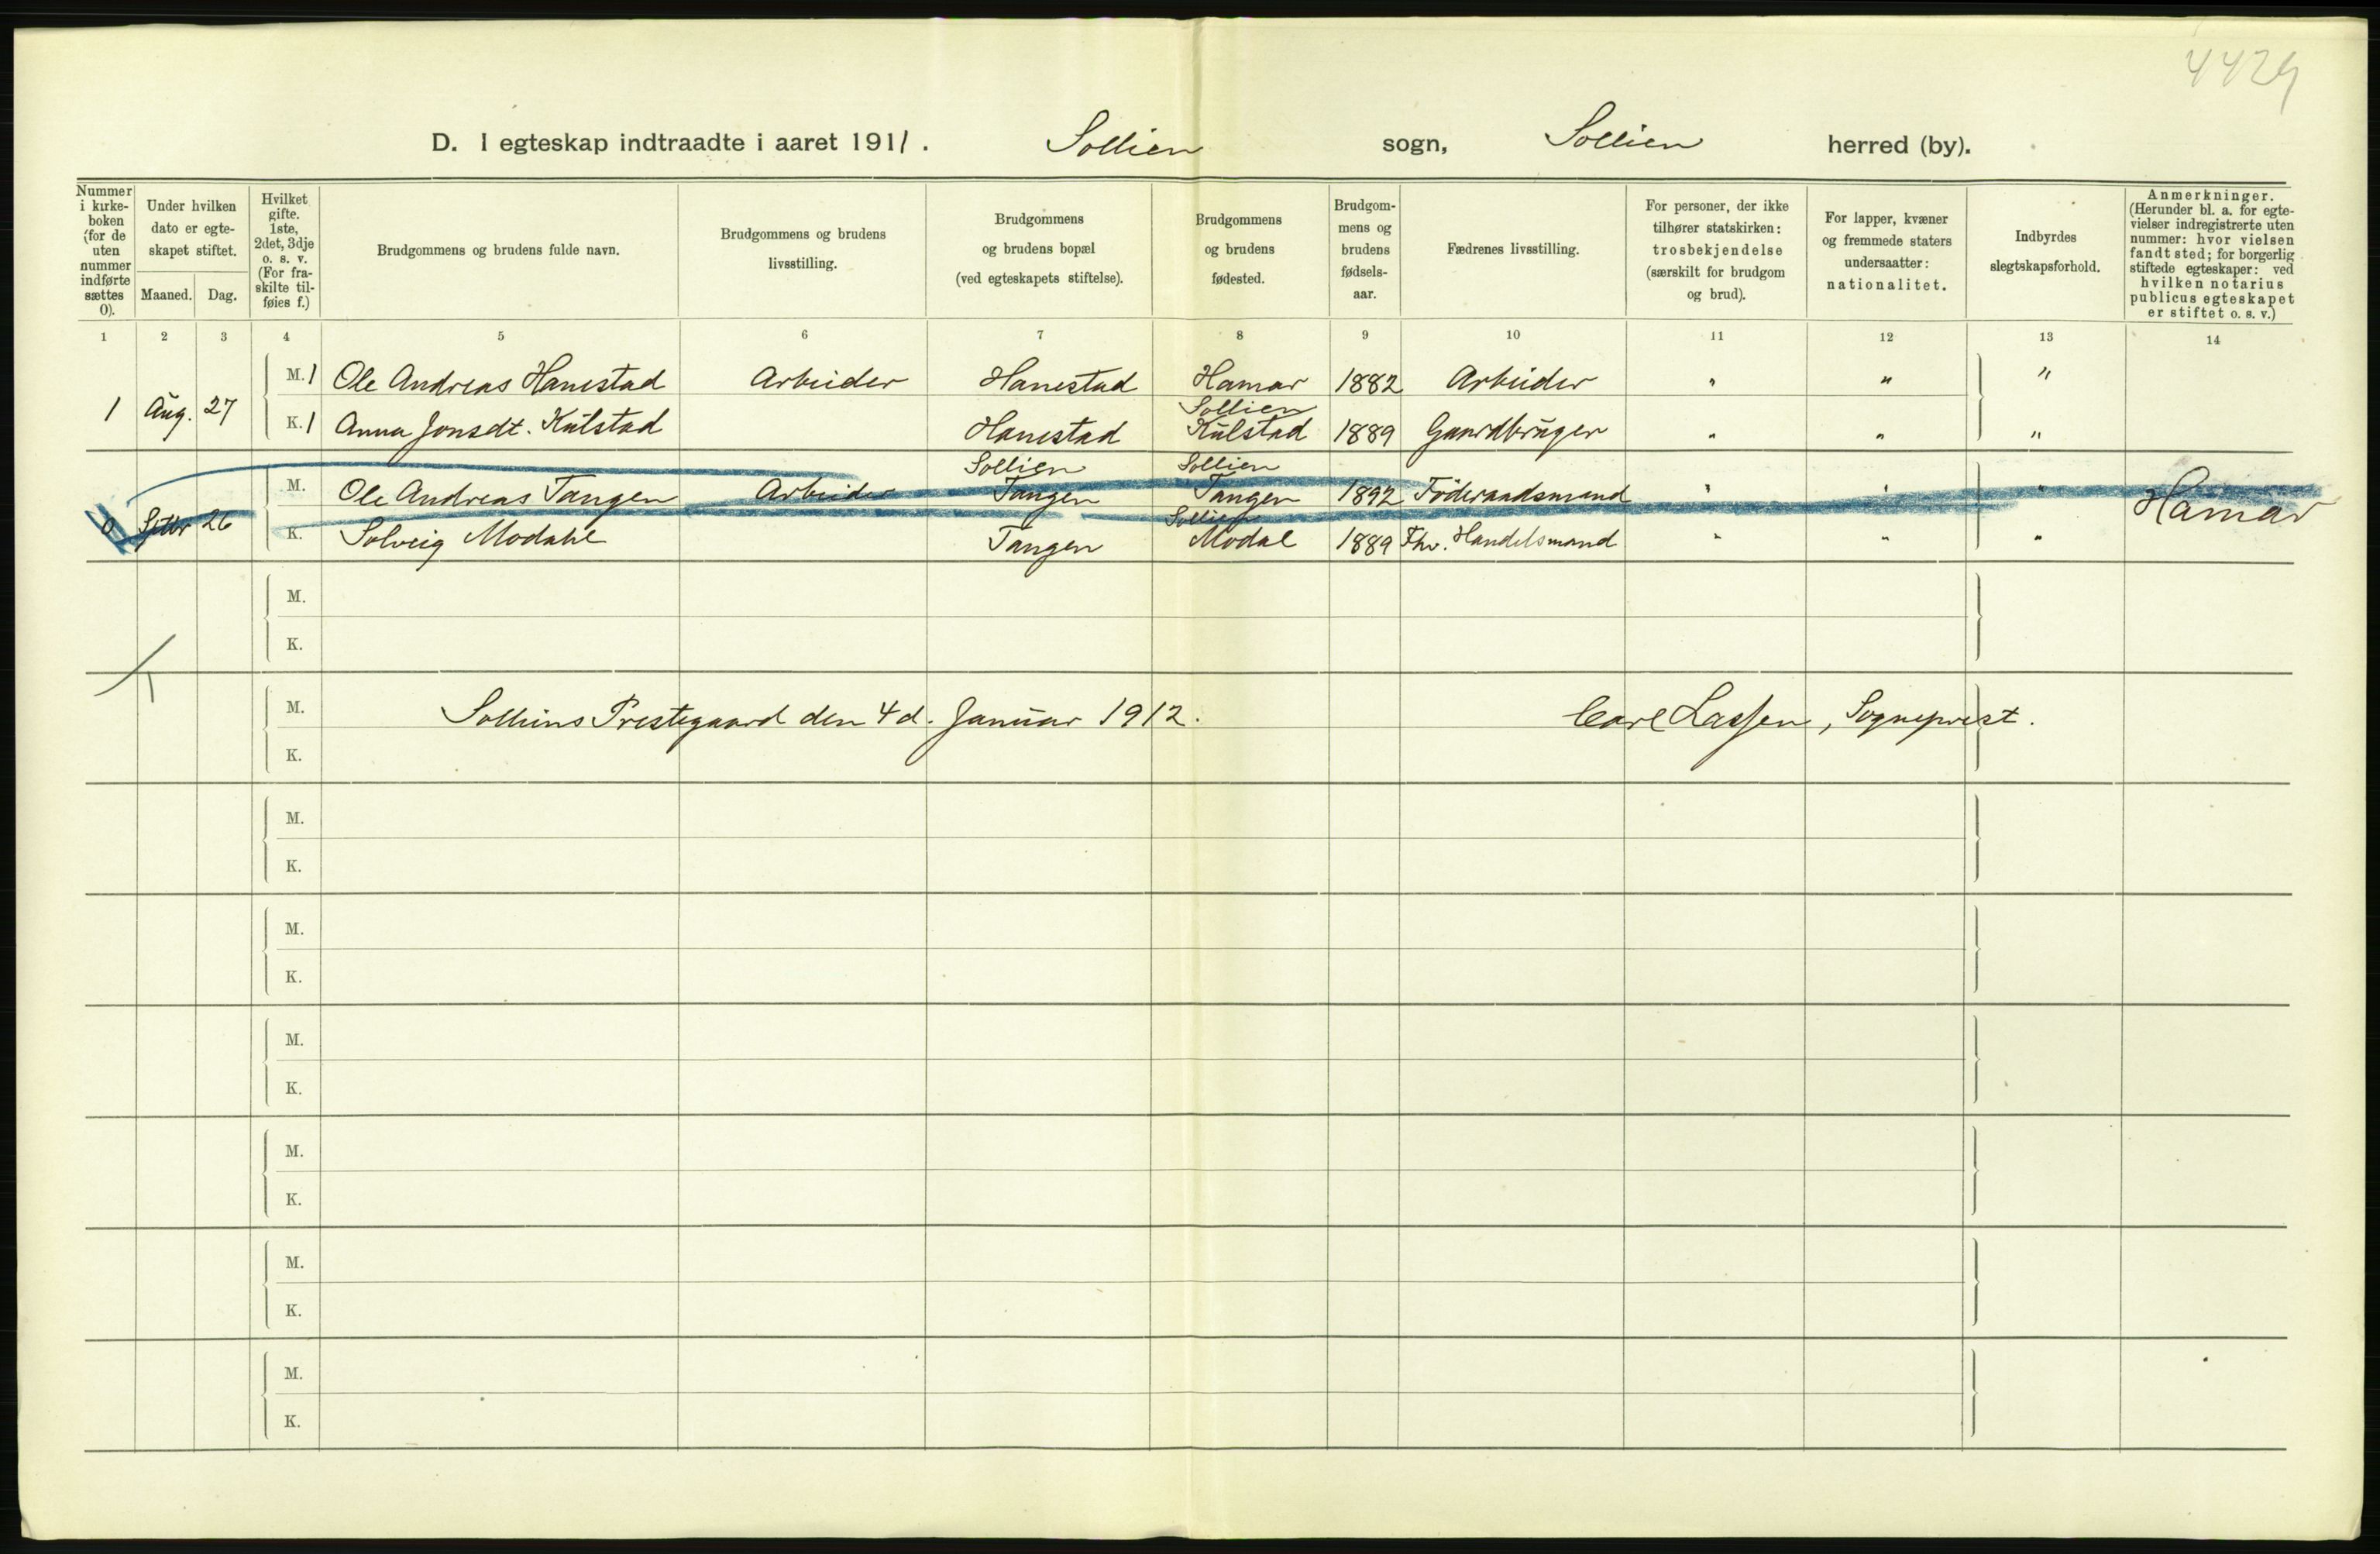 4429
D. I egteskap indtraadte i aaret 1911. Sollien sogn, Sollien herred (by).
Nummer i kirkeboken (for de uten nummer indførte sættes 0).
Under hvilken dato er egteskapet stiftet.
Maaned. Dag.
Hvilket gifte. 1ste, 2det, 3dje o. s. v. (For fraskilte tilføies f.)
Brudgommens og brudens fulde navn.
Brudgommens og brudens livsstilling.
Brudgommens og brudens bopæl (ved egteskapets stiftelse).
Brudgommens og brudens fødested.
Brudgommens og brudens fødselsaar.
Fædrenes livsstilling.
For personer, der ikke tilhører statskirken: trosbekjendelse (særskilt for brudgom og brud).
For lapper, kvæner og fremmede staters undersaatter: nationalitet.
Indbyrdes slegtskapsforhold.
Anmerkninger. (Herunder bl. a. for egtevielser indregistrerte uten nummer: hvor vielsen fandt sted; for borgerlig stiftede egteskaper: ved hvilken notarius publicus egteskapet er stiftet o. s. v.)
1 2 3 4 5 6 7 8 9 10 11 12 13 14
M. 1 Ole Andreas Hanestad Arbeider Hanestad Hamar 1882 Arbeider " " "
1 Aug. 27
Sollien
K. 1 Anna Jonsdt. Kulstad Hanestad Kulstad 1889 Gaardbruger " " "
Sollien Sollien
M. Ole Andreas Tangen Arbeider Tangen Tangen 1892 Föderaadsmand " " " Hamar
0 Septbr 26
Sollien
K. Solveig Modahl Tangen Modal 1889 Fhv. Handelsmand " " "
M.
K.
M.
Solliens Prestegaard den 4d. Januar 1912. Carl Lassen, Sogneprest.
K.
M.
K.
M.
K.
M.
K.
M.
K.
M.
K.
M.
K.